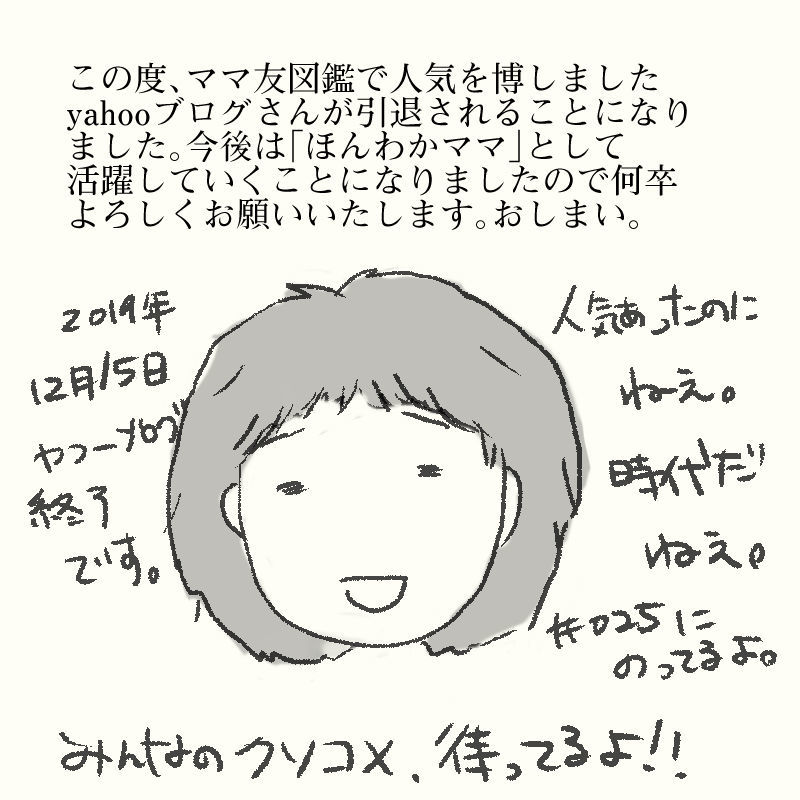 この度、ママ友図鑑で人気を博しました
yahooブログさんが引退されることになり
ました。今後は「ほんわかママ」として
活躍していくことになりましたので何卒
よろしくお願いいたします。おしまい。
2019年
12月15日
ヤフーブログ
終了
です。
人気あったのに
ねぇ。
時代だ
ねぇ。
#025に
のってるよ。
みんなのクソコメ、待ってるよ!!